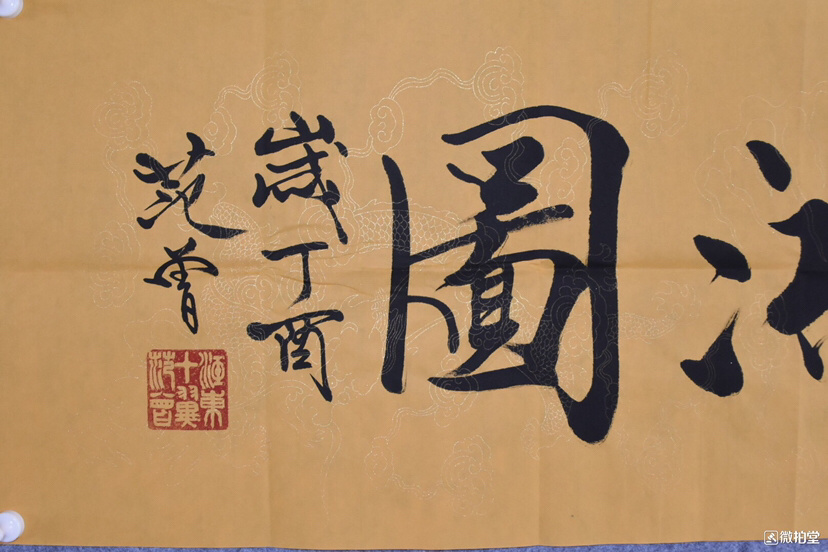 圖
歲丁酉
范曾
江東
十翼
范曾
微拍堂